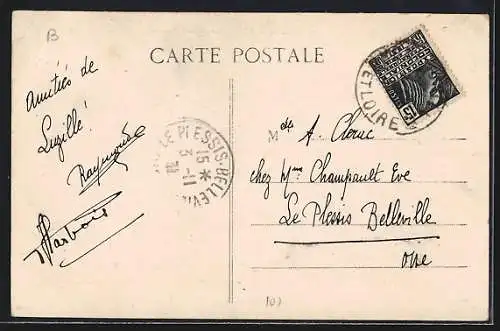 B
CARTE POSTALE
Amitiés de
Luzillé!
Raymonde
LE PLESSIS-BELLEVILLE
15 *
3 -11
31
ET LOIRE
15c
Mlle A. Cleruc
chez Mme Champault Eve
Le Plessis Belleville
Oise
107